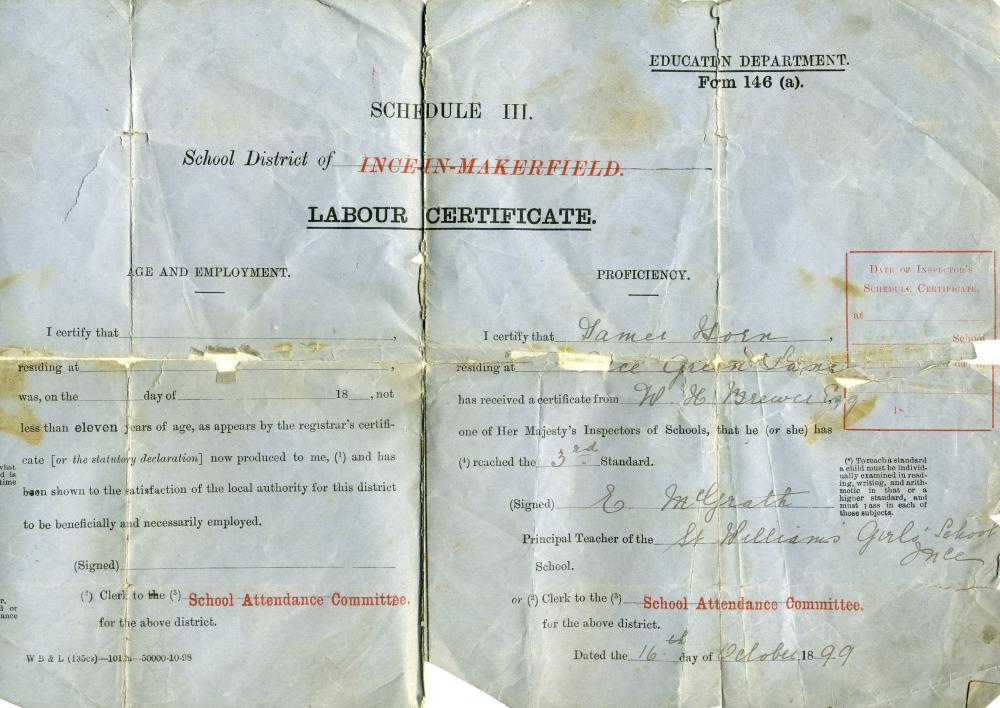 EDUCATION DEPARTMENT.
Form 146 (a).
SCHEDULE III.
School District of INCE-IN-MAKERFIELD.
LABOUR CERTIFICATE.
AGE AND EMPLOYMENT.
I certify that ,
residing at ,
was, on the day of 18 , not
less than eleven years of age, as appears by the registrar's certifi-
cate [or the statutory declaration] now produced to me, (¹) and has
been shown to the satisfaction of the local authority for this district
to be beneficially and necessarily employed.
(Signed)
(²) Clerk to the (³) School Attendance Committee.
for the above district.
W B & L (135cs)—10124—50000-10-98
what
d is
time
r.
d or
ance
PROFICIENCY.
I certify that James Horn ,
residing at Ince Green Lane
has received a certificate from W. H. Brewer Esq
one of Her Majesty's Inspectors of Schools, that he (or she) has
(⁴) reached the 3rd Standard.
(Signed) E. McGrath
Principal Teacher of the St Williams Girls' School
Ince
School.
or (²) Clerk to the (³) School Attendance Committee.
for the above district.
Dated the 16th day of October, 1899
DATE OF INSPECTOR'S
SCHEDULE CERTIFICATE.
at
School
day of
18
(⁴) To reach a standard
a child must be individ-
ually examined in read-
ing, writing, and arith-
metic in that or a
higher standard, and
must pass in each of
those subjects.